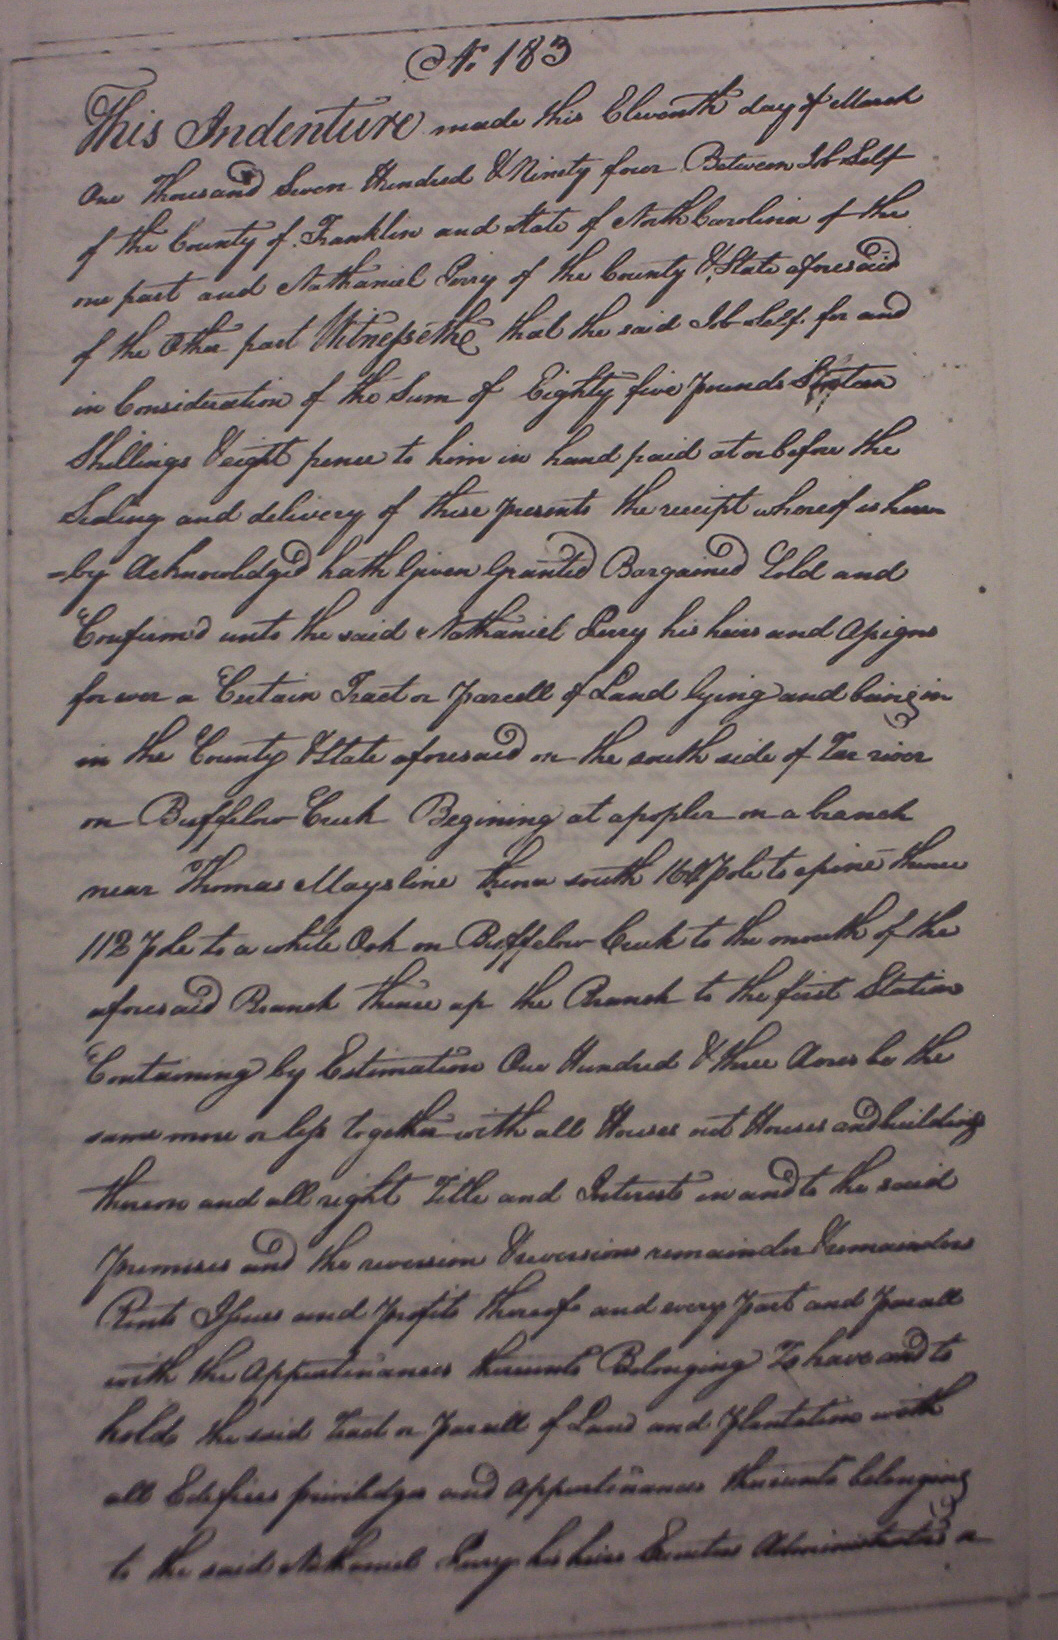 No. 183
This Indenture made this Eleventh day of March
One Thousand Seven Hundred & Ninety four Between Job Self
of the County of Franklin and State of North Carolina of the
one part and Nathaniel Perry of the County & State aforesaid
of the Other part Witnesseth that the said Job Self for and
in Consideration of the Sum of Eighty five pounds
Shillings & eight pence to him in hand paid at or before the
Sealing and delivery of these presents the receipt whereof is here
=by Acknowledged hath Given Granted Bargained Sold and
Confirm'd unto the said Nathaniel Perry his heirs and Assigns
for ever a Certain Tract or parcell of Land lying and being in
in the County & State aforesaid on the south side of Tar river
on Buffelow Creek Begining at a popler on a branch
near Thomas Mays line thence south pole to a pine thence
112 pole to a white Oak on Buffelow Creek to the mouth of the
aforesaid Branch thence up the Branch to the first Station
Containing by Estimation One Hundred & three Acres be the
same more or less together with all Houses out Houses and buildings
thereon and all right Title and Interest in and to the said
premises and the reversion & reversions remainder & remainders
Rents Issues and profits thereof and every part and parcell
with the Appurtinances thereunto Belonging To have and to
hold the said Tract or parcell of Land and plantation with
all Edefices priviledges and appurtinances thereunto belonging
to the said Nathaniel Perry his heirs Executors Administrators or